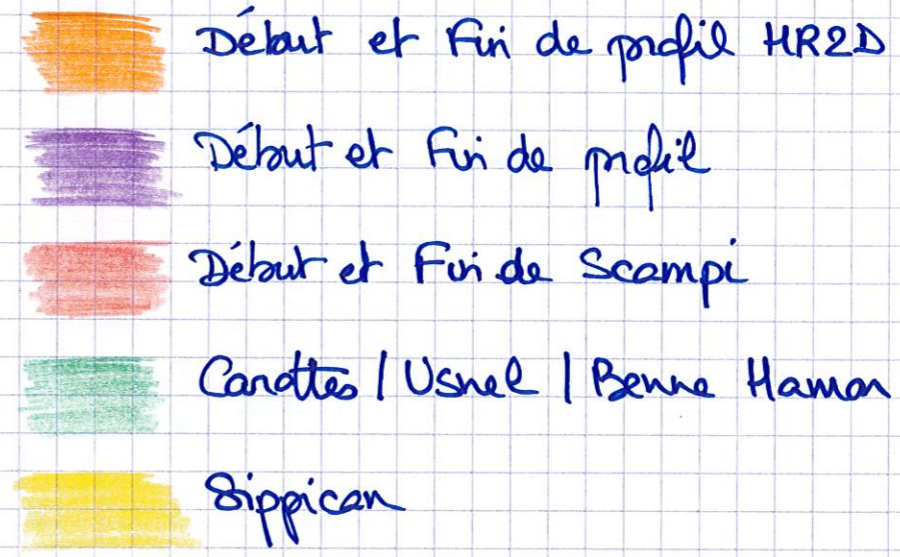 Début et Fin de profil HR2D
Début et Fin de profil
Début et Fin de Scampi
Carottes / Usnel / Benne Hamon
Sippican